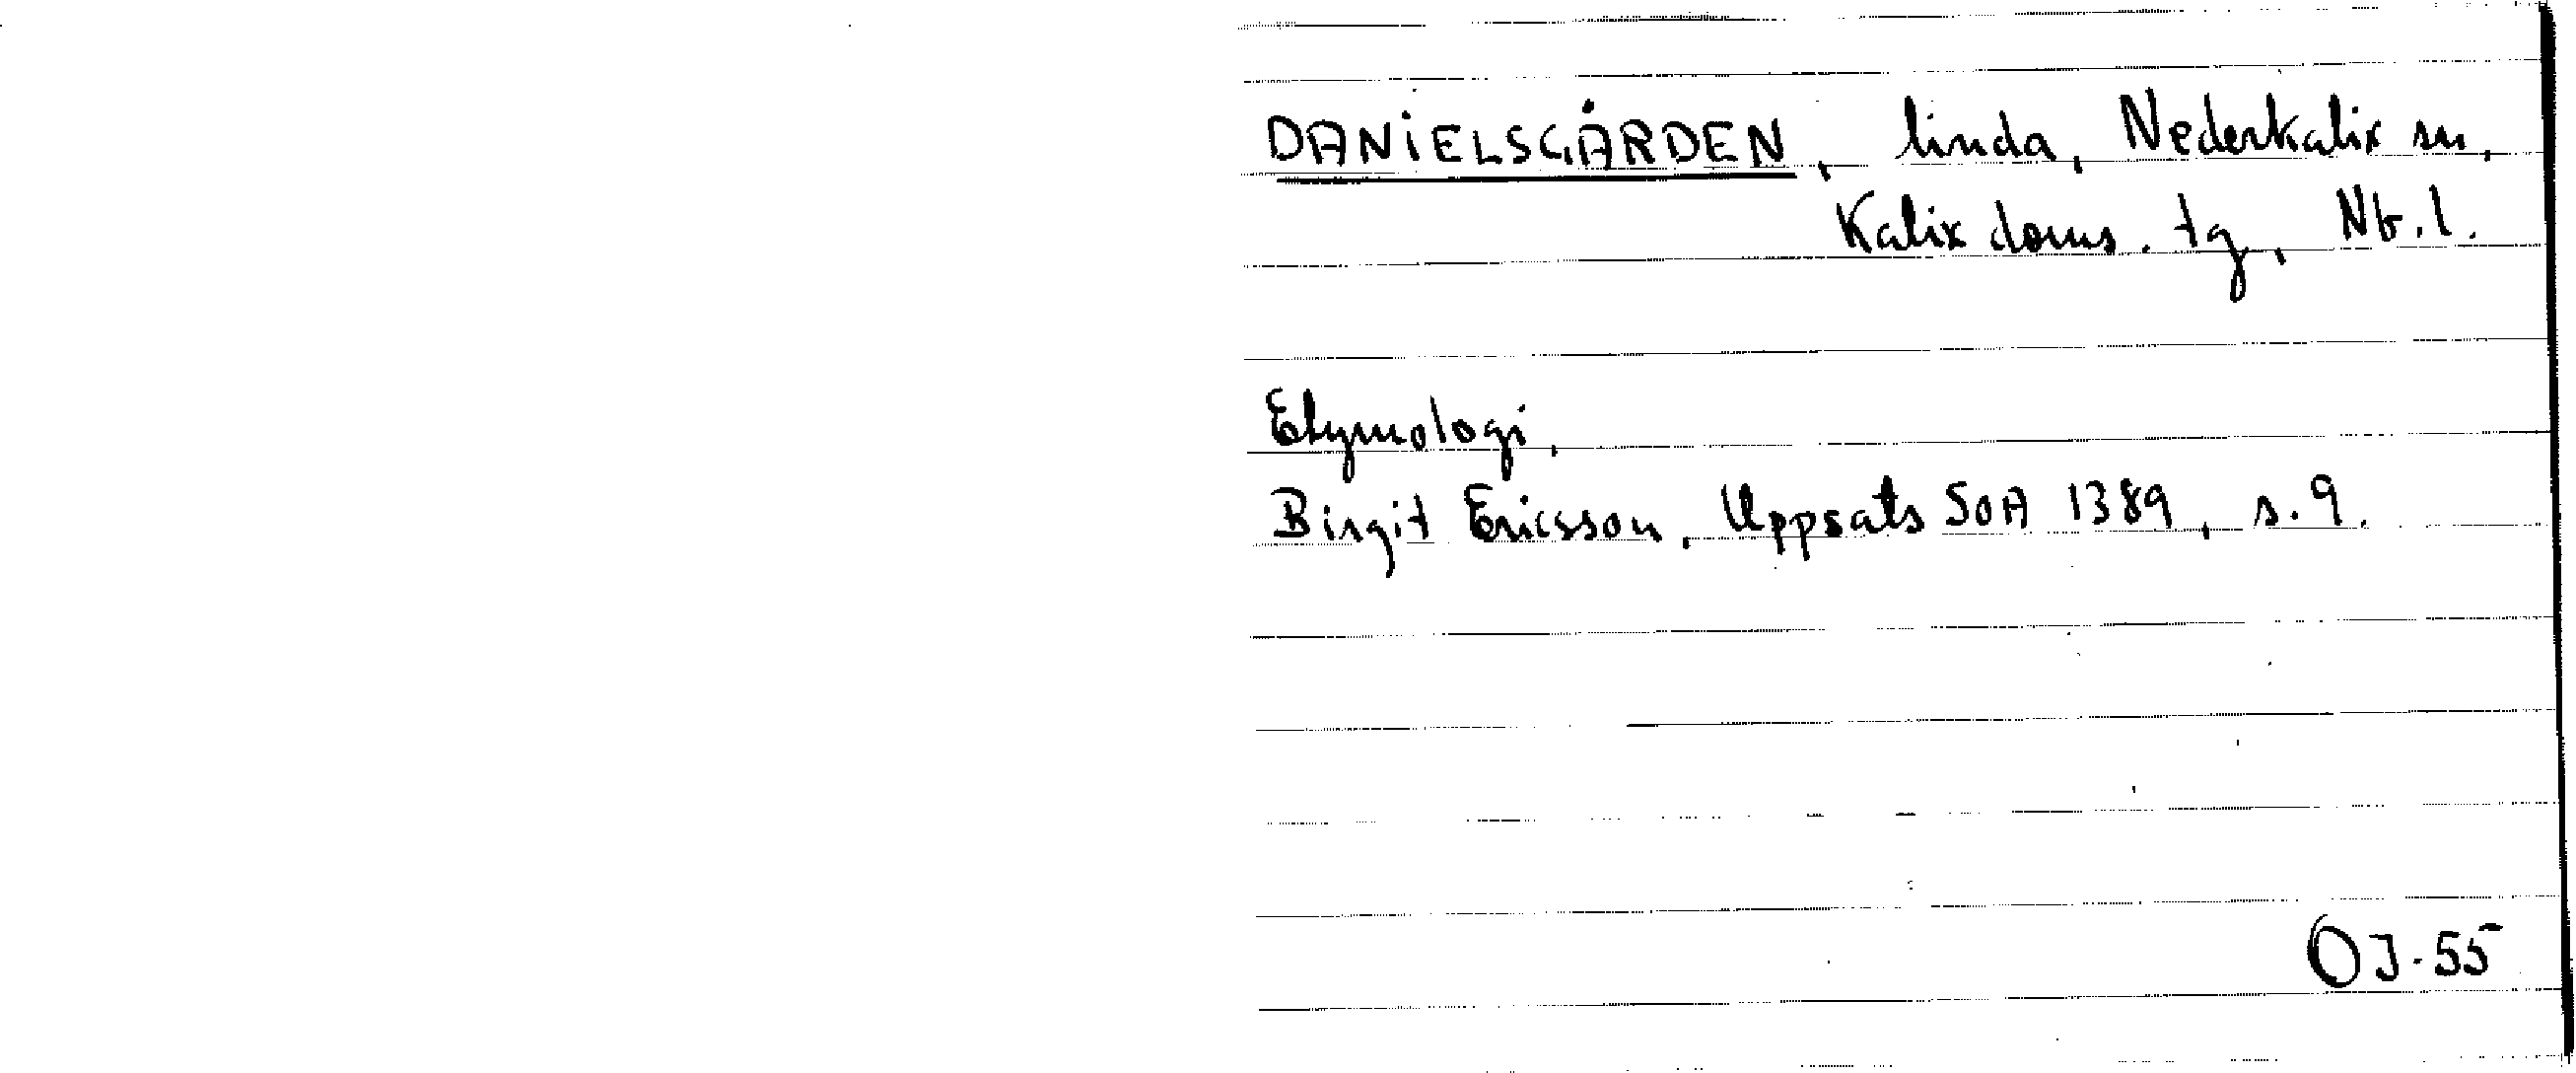 DANIELSGÅRDEN, linda, Nederkalix sn,
Kalix doms. tg, Nb. l.
Etymologi,
Birgit Ericsson, Uppsats SOA 1389, s. 9.
OJ-55